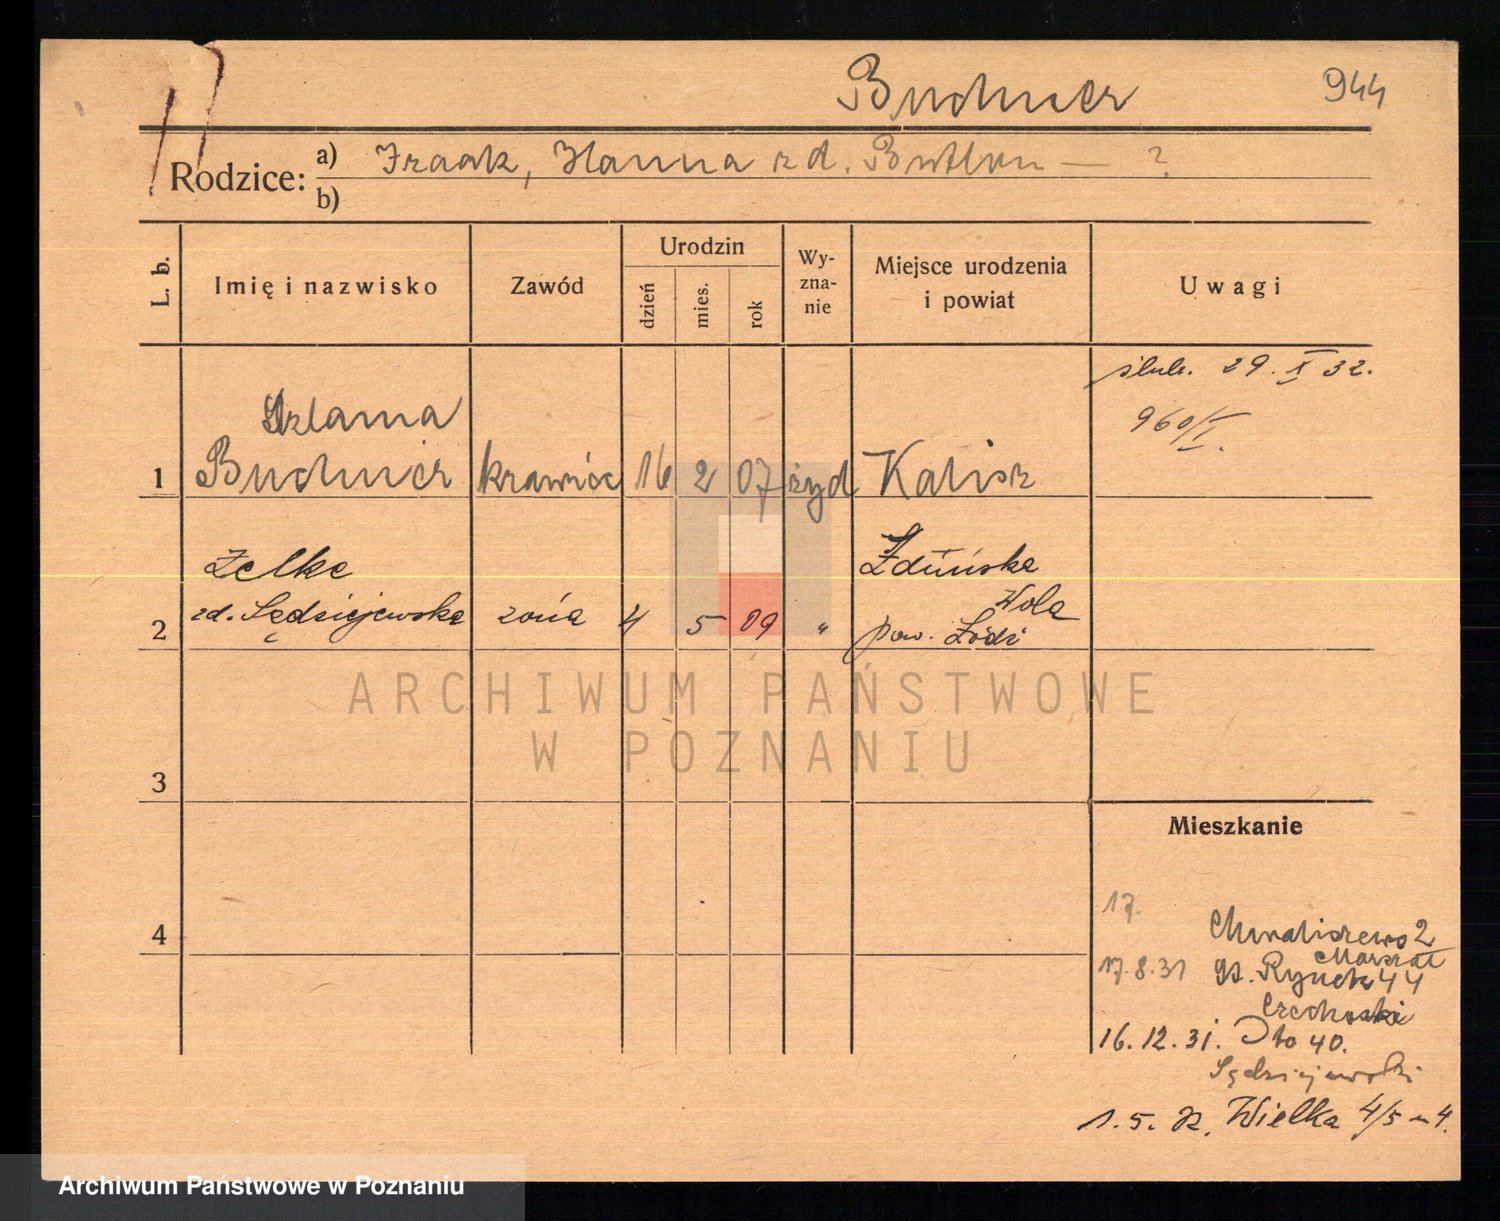 Buchner 944
Rodzice: a) Izaak, Hanna zd. — ?
b)
L. b. Imię i nazwisko Zawód Urodzin dzień mies. rok Wyznanie Miejsce urodzenia i powiat Uwagi
ślub. 29. X 32.
960/I.
Szlama
1 Buchner krawiec 16 2 07 żyd Kalisz
Zelke Zduńska
2 zd. Sędziejewska żona 4 5 09 " Wola
pow. Łódź
ARCHIWUM PAŃSTWOWE
W POZNANIU
3
Mieszkanie
17.
4 Chwaliszewo 2
17.8.31 St. Rynek 44
16.12.31. Dto 40.
Sędziejewski
1.5. Wielka 4/5 m 4.
Archiwum Państwowe w Poznaniu